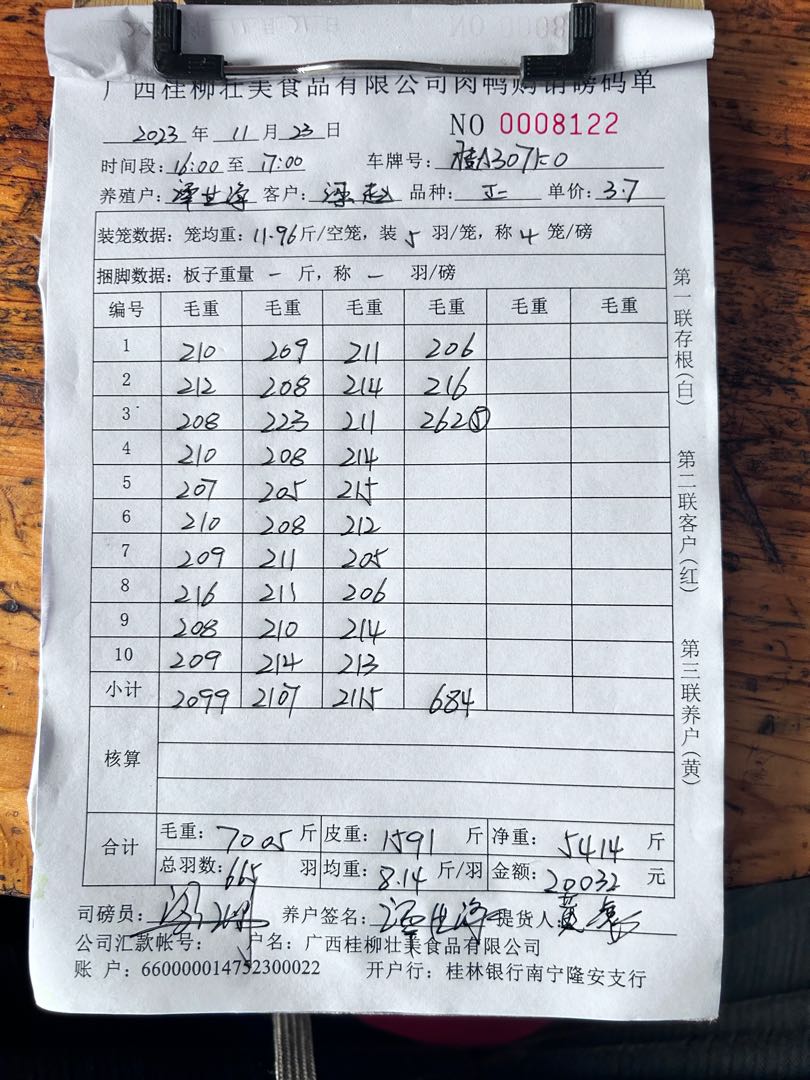 广西桂柳壮美食品有限公司肉鸭购销磅码单
2023年11月23日 NO 0008122
时间段:16:00至17:00 车牌号:桂A307K0
养殖户: 客户: 品种: 单价:3.7
装笼数据:笼均重:11.96斤/空笼,装5羽/笼,称4笼/磅
捆脚数据:板子重量 一 斤,称 一 羽/磅
编号 毛重 毛重 毛重 毛重 毛重 毛重
1 210 209 211 206
2 212 208 214 216
3 208 223 211 262⑤
4 210 208 214
5 207 205 215
6 210 208 212
7 209 211 205
8 216 211 206
9 208 210 214
10 209 214 213
小计 2099 2107 2115 684
核算
合计 毛重:7005斤 皮重:1591斤 净重:5414斤
总羽数:665羽 均重:8.14斤/羽 金额:20032元
司磅员: 养户签名: 提货人:
公司汇款帐号: 户名:广西桂柳壮美食品有限公司
账 户:660000014752300022 开户行:桂林银行南宁隆安支行
第一联存根(白)
第二联客户(红)
第三联养户(黄)